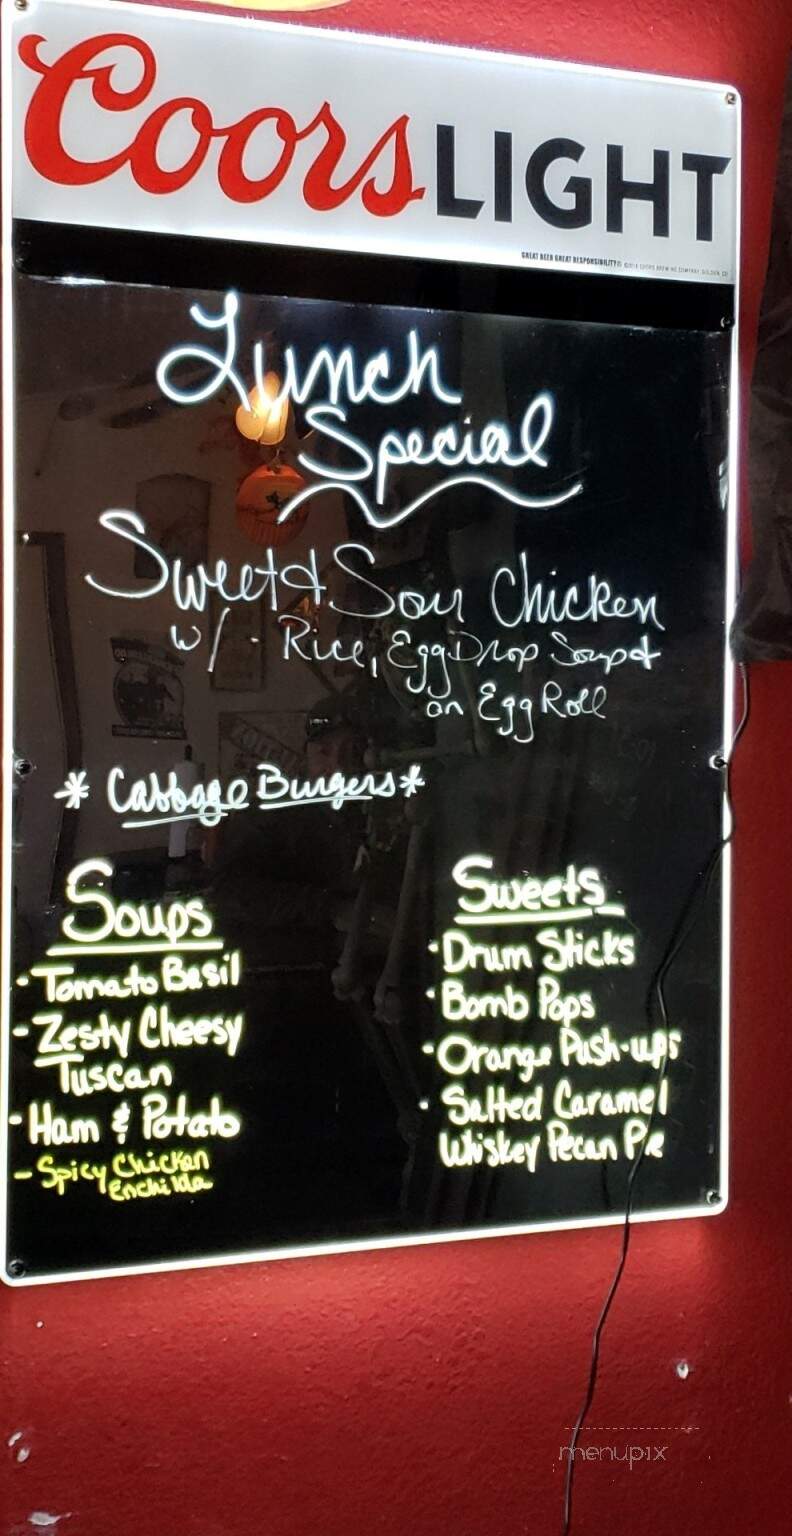 Coors LIGHT
GREAT BEER GREAT RESPONSIBILITY®
Lunch
Special
Sweet & Sour Chicken
w/ Rice, Egg Drop Soup &
an Egg Roll
* Cabbage Burgers *
Soups
- Tomato Basil
- Zesty Cheesy
Tuscan
- Ham & Potato
- Spicy Chicken
Enchilda
Sweets
• Drum Sticks
• Bomb Pops
• Orange Push-ups
• Salted Caramel
Whiskey Pecan Pie
menupix